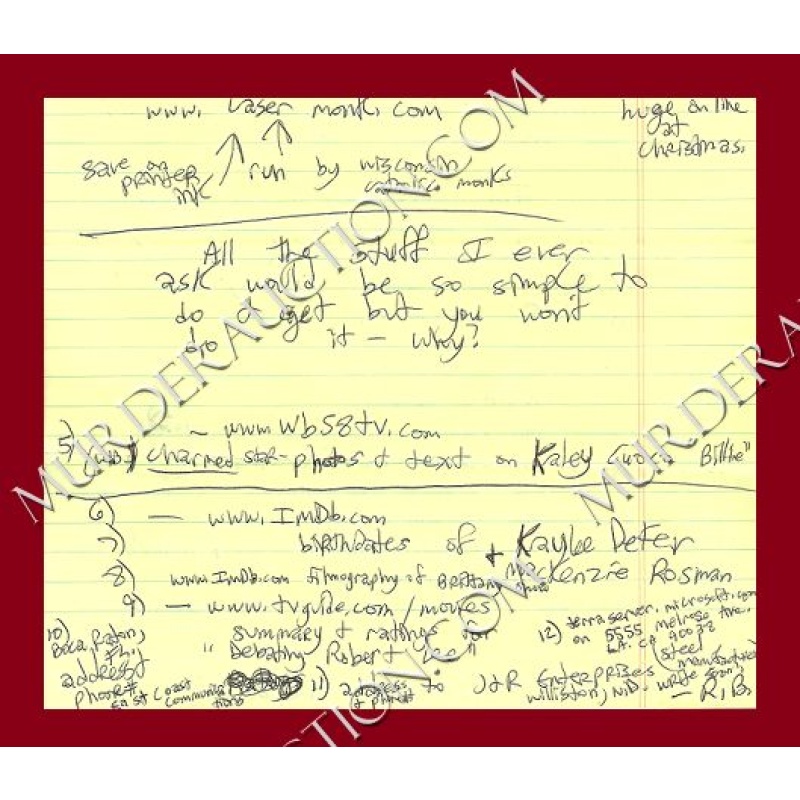 www. Laser monks.com
huge on line
at
Christmas.
save on
printer
ink
run by wisconsin
catholic monks
All the stuff I ever
ask would be so simple to
do & get but you won't
do it - why?
5) ~ www.wb58tv.com
(WB) charmed star - photos & text on Kaley Cuoco "Billie"
6) — www.ImDb.com
7) birthdates of Kaylee Defer
+ Mackenzie Rosman
8) www.ImDb.com filmography of Brittany Snow
9) — www.tvguide.com/movies
summary & ratings for
"Debating Robert Lee"
10) Boca Raton,
Fl.,
address &
phone#
East Coast
Communica
tions
11) address
& phone#
to J&R Enterprises
williston, ND.
12) terraserver.microsoft.com
on 5555 melrose Ave.
L.A. CA 90038
(steel
manufacturer)
write soon,
— R.B.
MURDERAUCTION.COM
MURDERAUCTION.COM